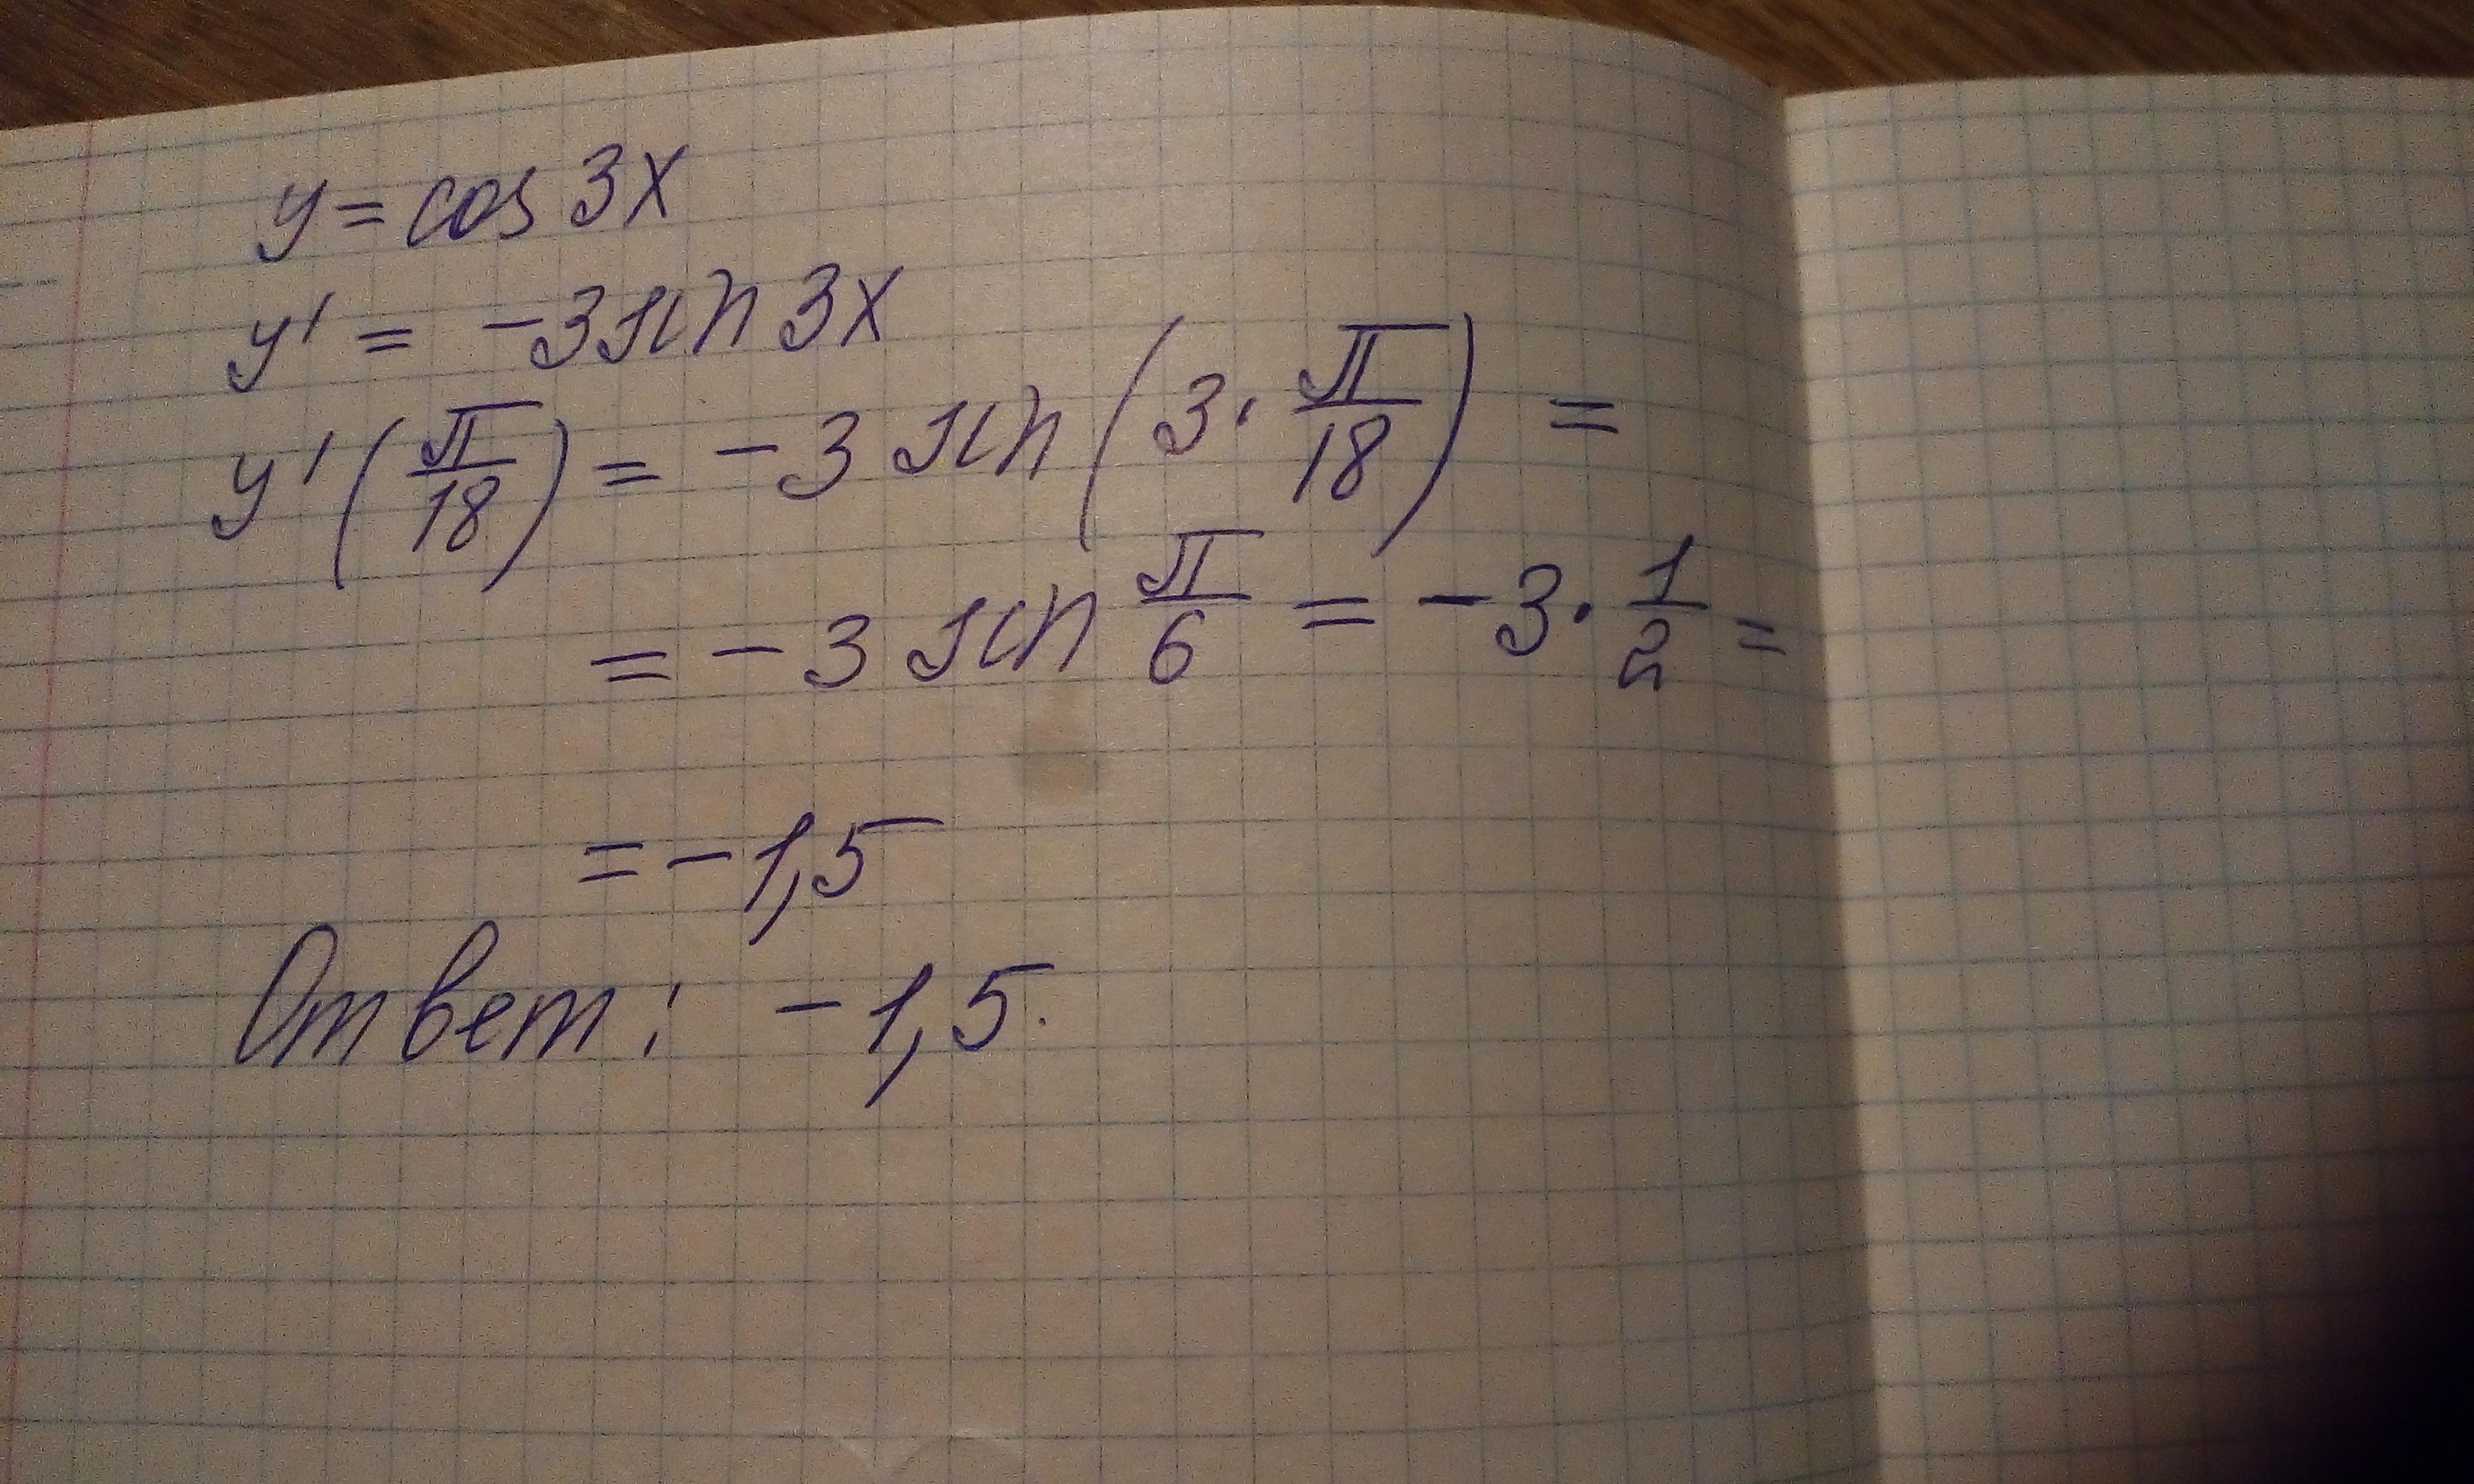 y = cos 3x
y' = -3 sin 3x
y'(π/18) = -3 sin(3·π/18) =
= -3 sin π/6 = -3·1/2 =
= -1,5
Ответ: -1,5.